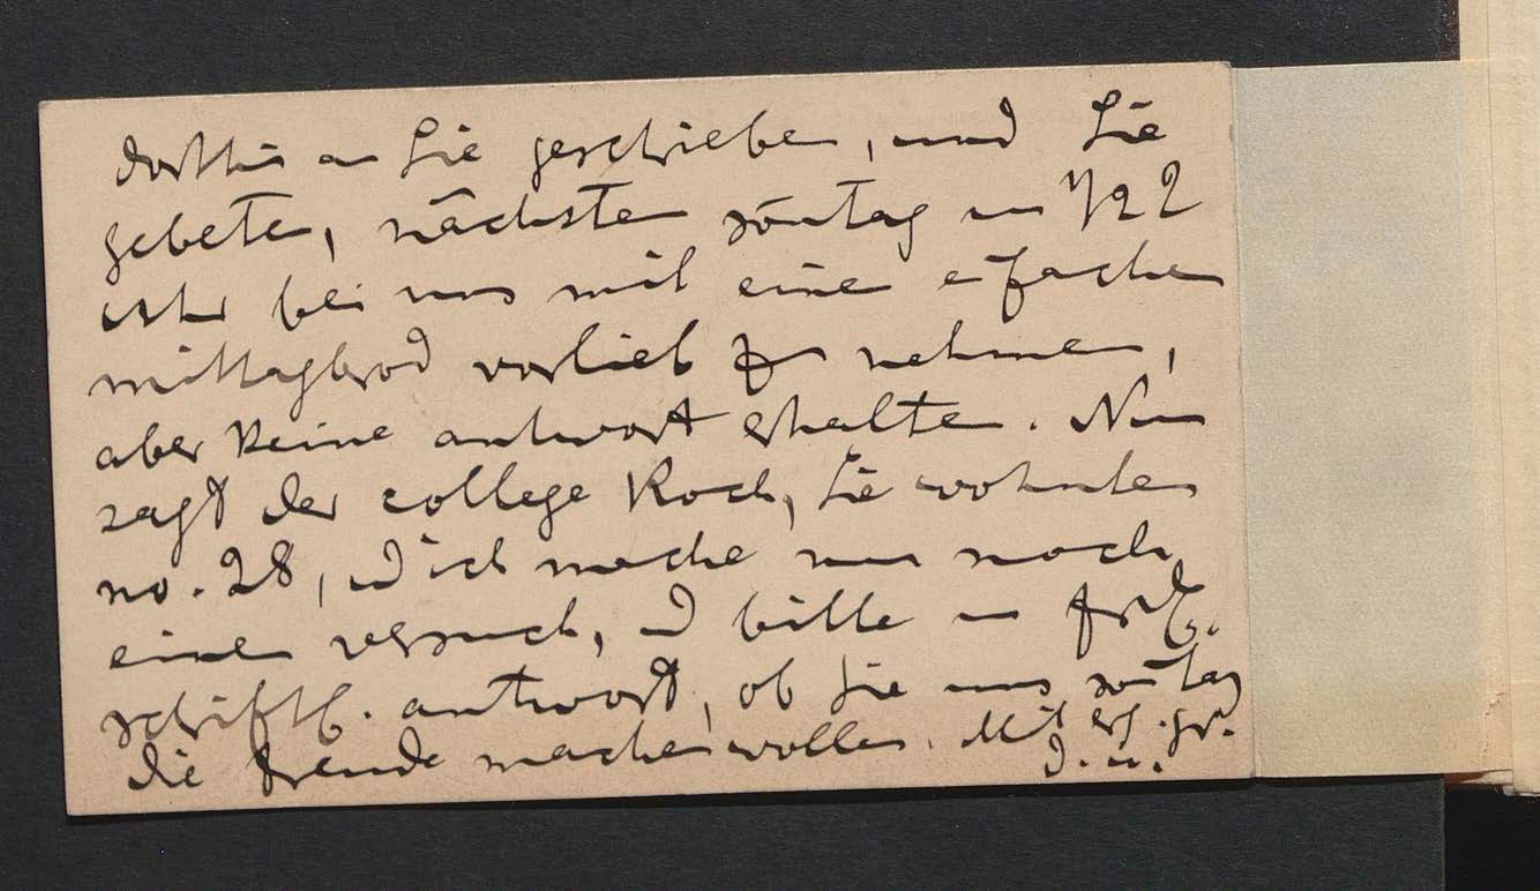 dorthin an Sie geschrieben, und Sie
gebeten, nächsten sōntag um 1/2 2
uhr bei uns mit einem eīfachen
mittagbrod vorlieb zu nehmen,
aber keine antwort erhalten. Nun
sagt der college Koch, Sie wohnten
no. 28, ud ich mache nun noch
einen versuch, ud bitte um frdl.
schriftl. antwort, ob Sie uns sōntag
die freude machen wollen. Mit erg. gr.
D. u.